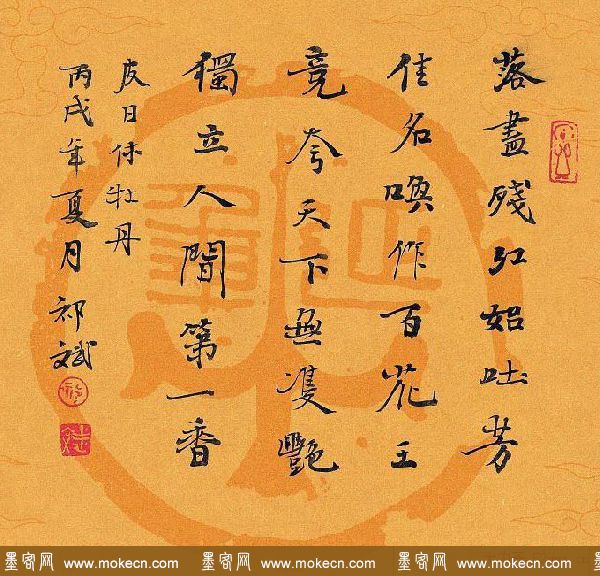 落盡殘红始吐芳
佳名喚作百花王
竞夸天下無雙艷
獨立人間第一香
皮日休牡丹
丙戌年夏月祁斌
墨客网 www.mokecn.com 墨客网 www.mokecn.com 墨客网 www.mokecn.com